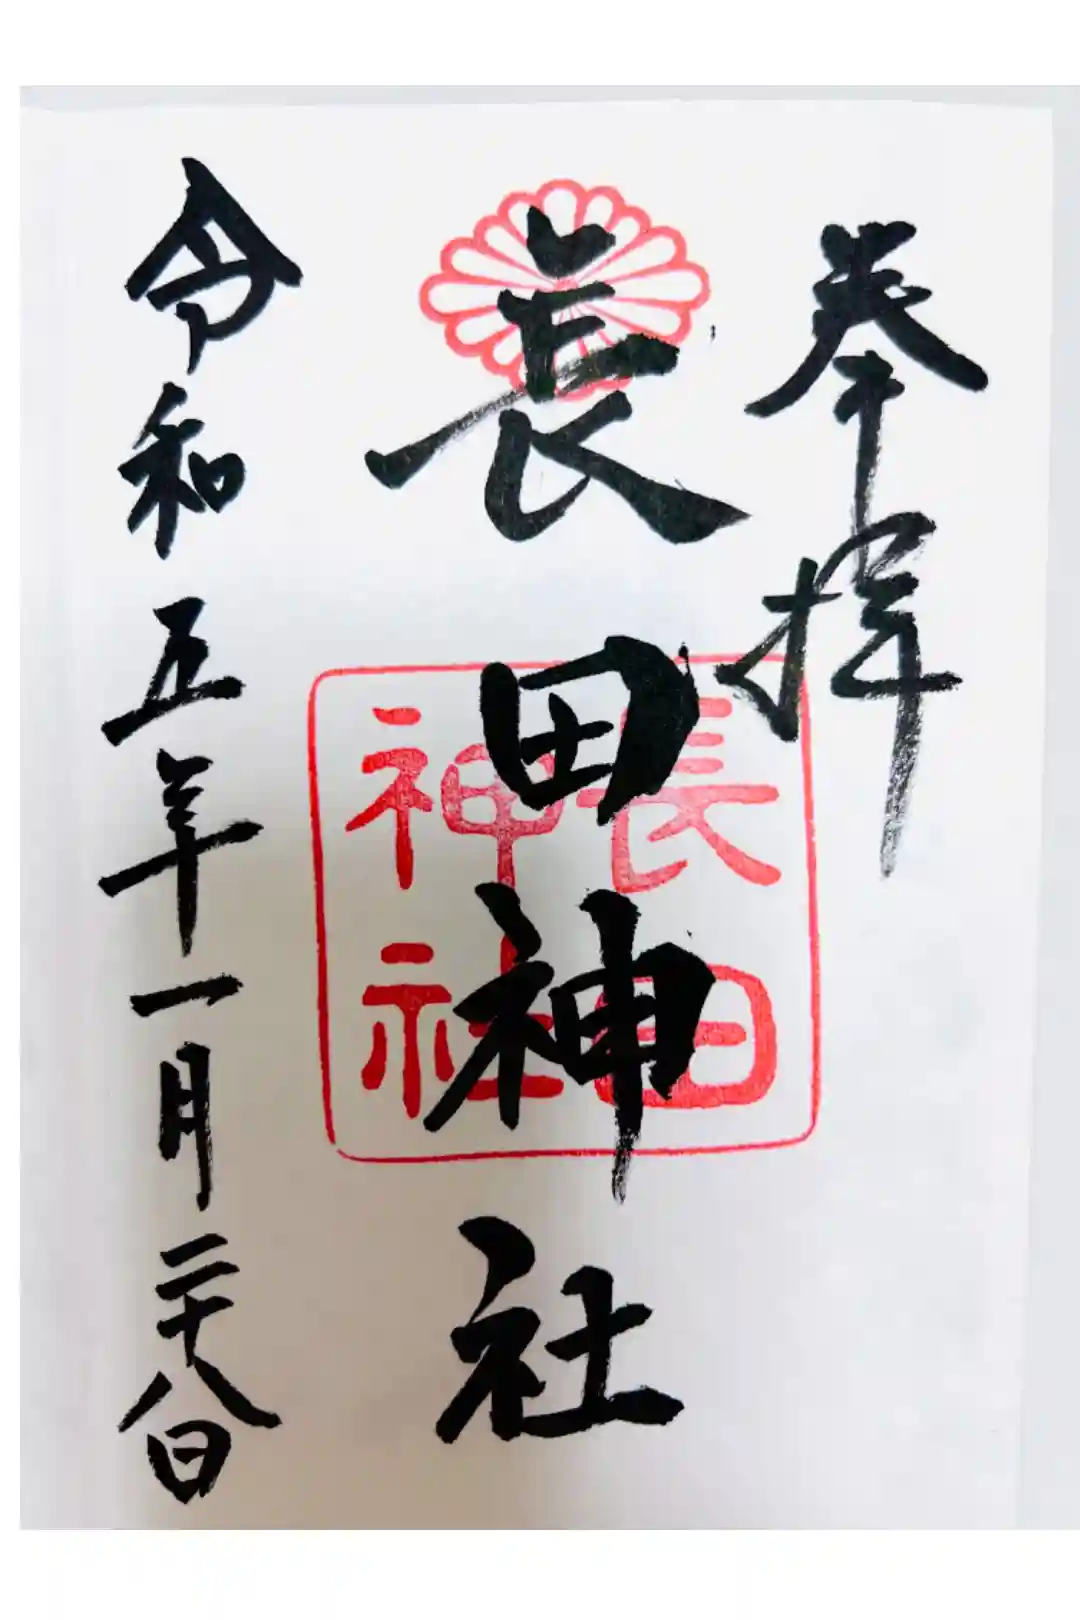 奉拝
長田神社
長田
神社
令和五年一月二十八日